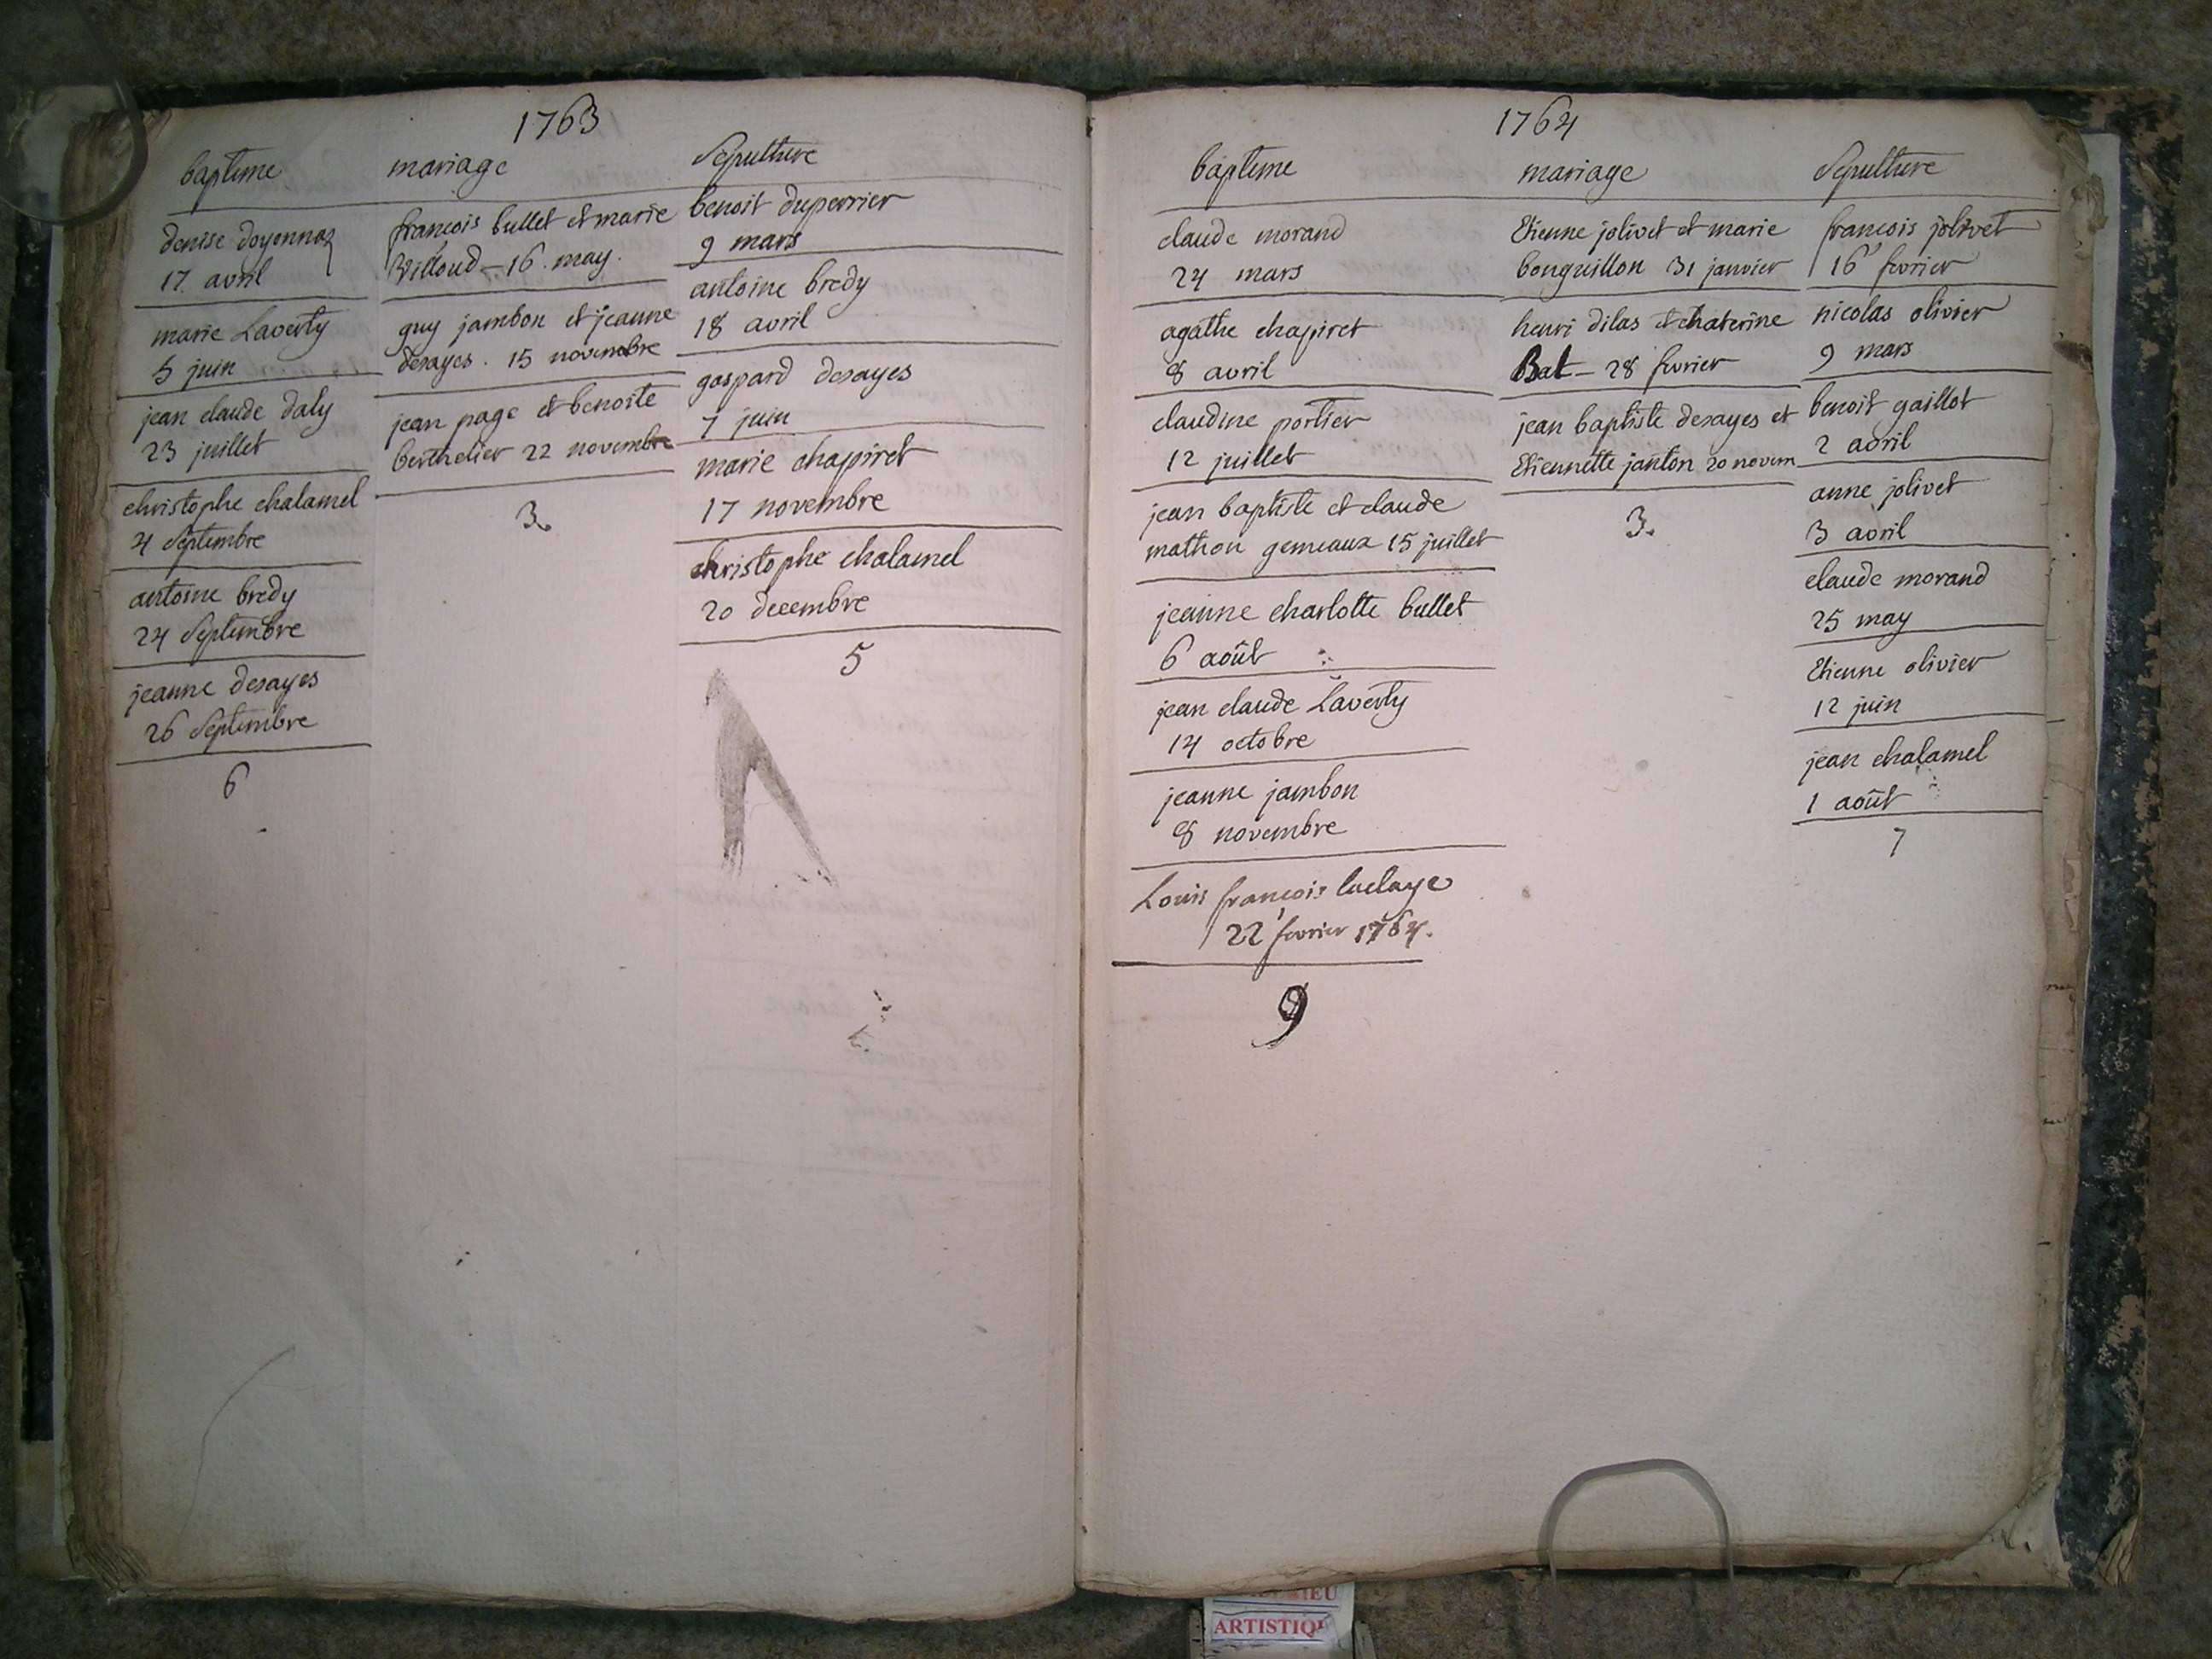 1763
bapteme
denise doyonnaz
17 avril
marie Laverty
5 juin
jean claude daly
23 juillet
christophe chalamel
4 Septembre
antoine bredy
24 Septembre
jeanne desayes
26 Septembre
6
mariage
francois bullet et marie
Villoud - 16. may.
guy jambon et jeanne
desayes. 15 novembre
jean page et benoite
berthelier 22 novembre
3.
Sepulture
benoit duperrier
9 mars
antoine bredy
18 avril
gaspard desayes
7 juin
marie chapiret
17 novembre
christophe chalamel
20 decembre
5
1764
bapteme
claude morand
24 mars
agathe chapiret
8 avril
claudine portier
12 juillet
jean baptiste et claude
mathon gemeaux 15 juillet
jeanne charlotte bullet
6 août
jean claude Laverty
14 octobre
jeanne jambon
8 novembre
Louis francois luclaye
22 fevrier 1764.
9
mariage
Etienne jolivet et marie
bonguillon 31 janvier
henri dilas et chaterine
Bat - 28 fevrier
jean baptiste desayes et
Etiennette janton 20 novem
3.
Sepulture
francois jolivet
16 fevrier
nicolas olivier
9 mars
benoit gaillot
2 avril
anne jolivet
3 avril
claude morand
25 may
Etienne olivier
12 juin
jean chalamel
1 août
7
ARTISTIQ